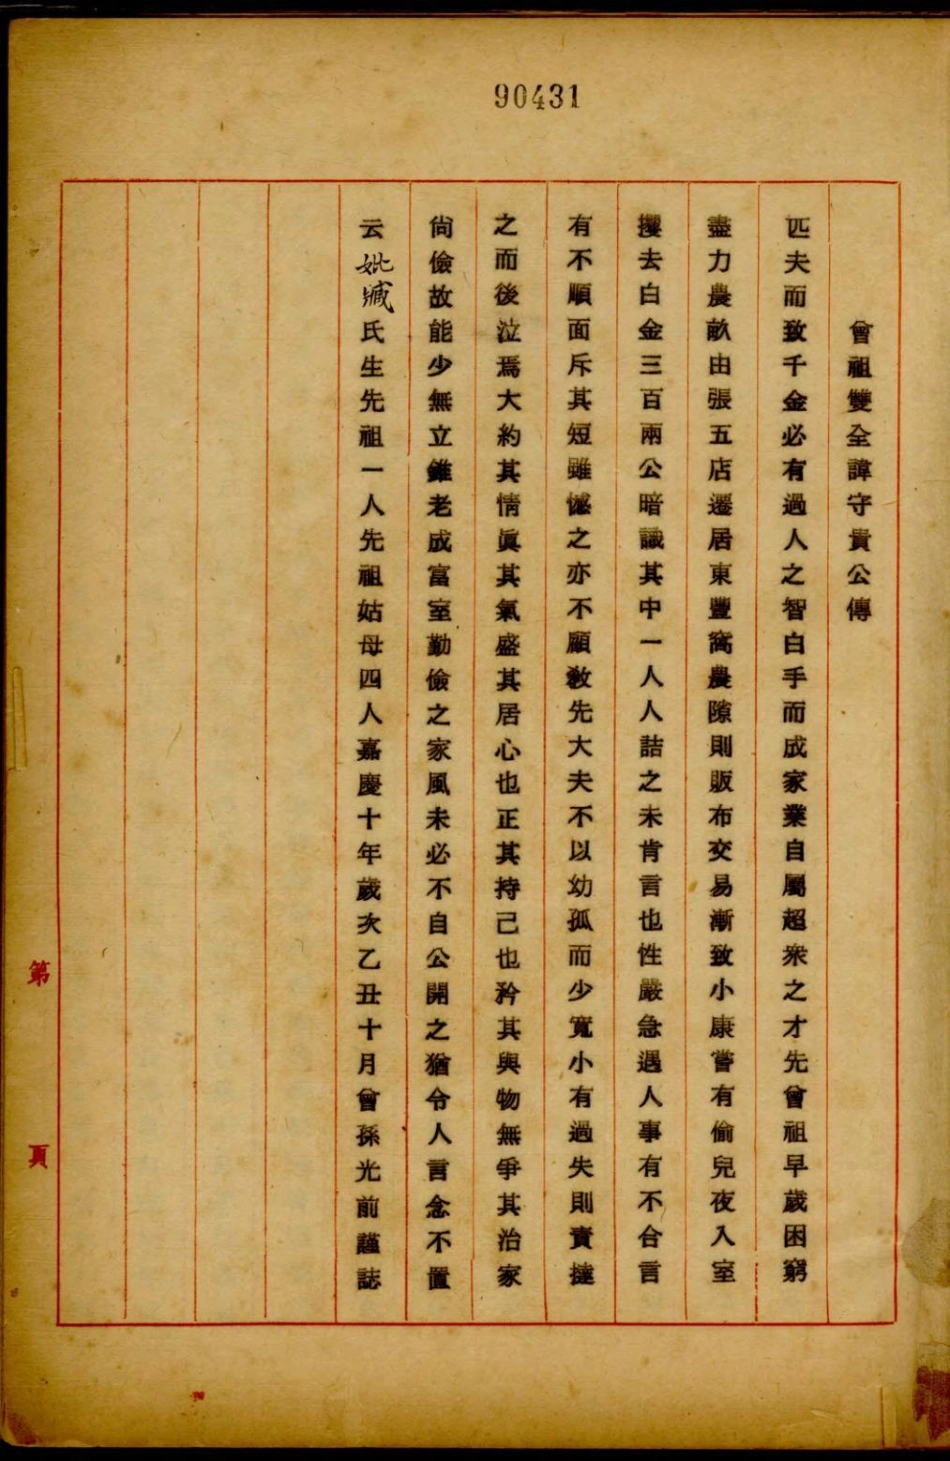 90431
曾祖雙全諱守貴公傳
匹夫而致千金必有過人之智白手而成家業自屬超衆之才先曾祖早歲困窮
盡力農畝由張五店遷居東豐窩農隙則販布交易漸致小康嘗有偷兒夜入室
攫去白金三百兩公暗識其中一人人詰之未肯言也性嚴急遇人事有不合言
有不順面斥其短雖憾之亦不顧敎先大夫不以幼孤而少寬小有過失則責撻
之而後泣焉大約其情眞其氣盛其居心也正其持己也矜其與物無爭其治家
尙儉故能少無立錐老成富室勤儉之家風未必不自公開之猶令人言念不置
云妣臧氏生先祖一人先祖姑母四人嘉慶十年歲次乙丑十月曾孫光前謹誌
第 頁